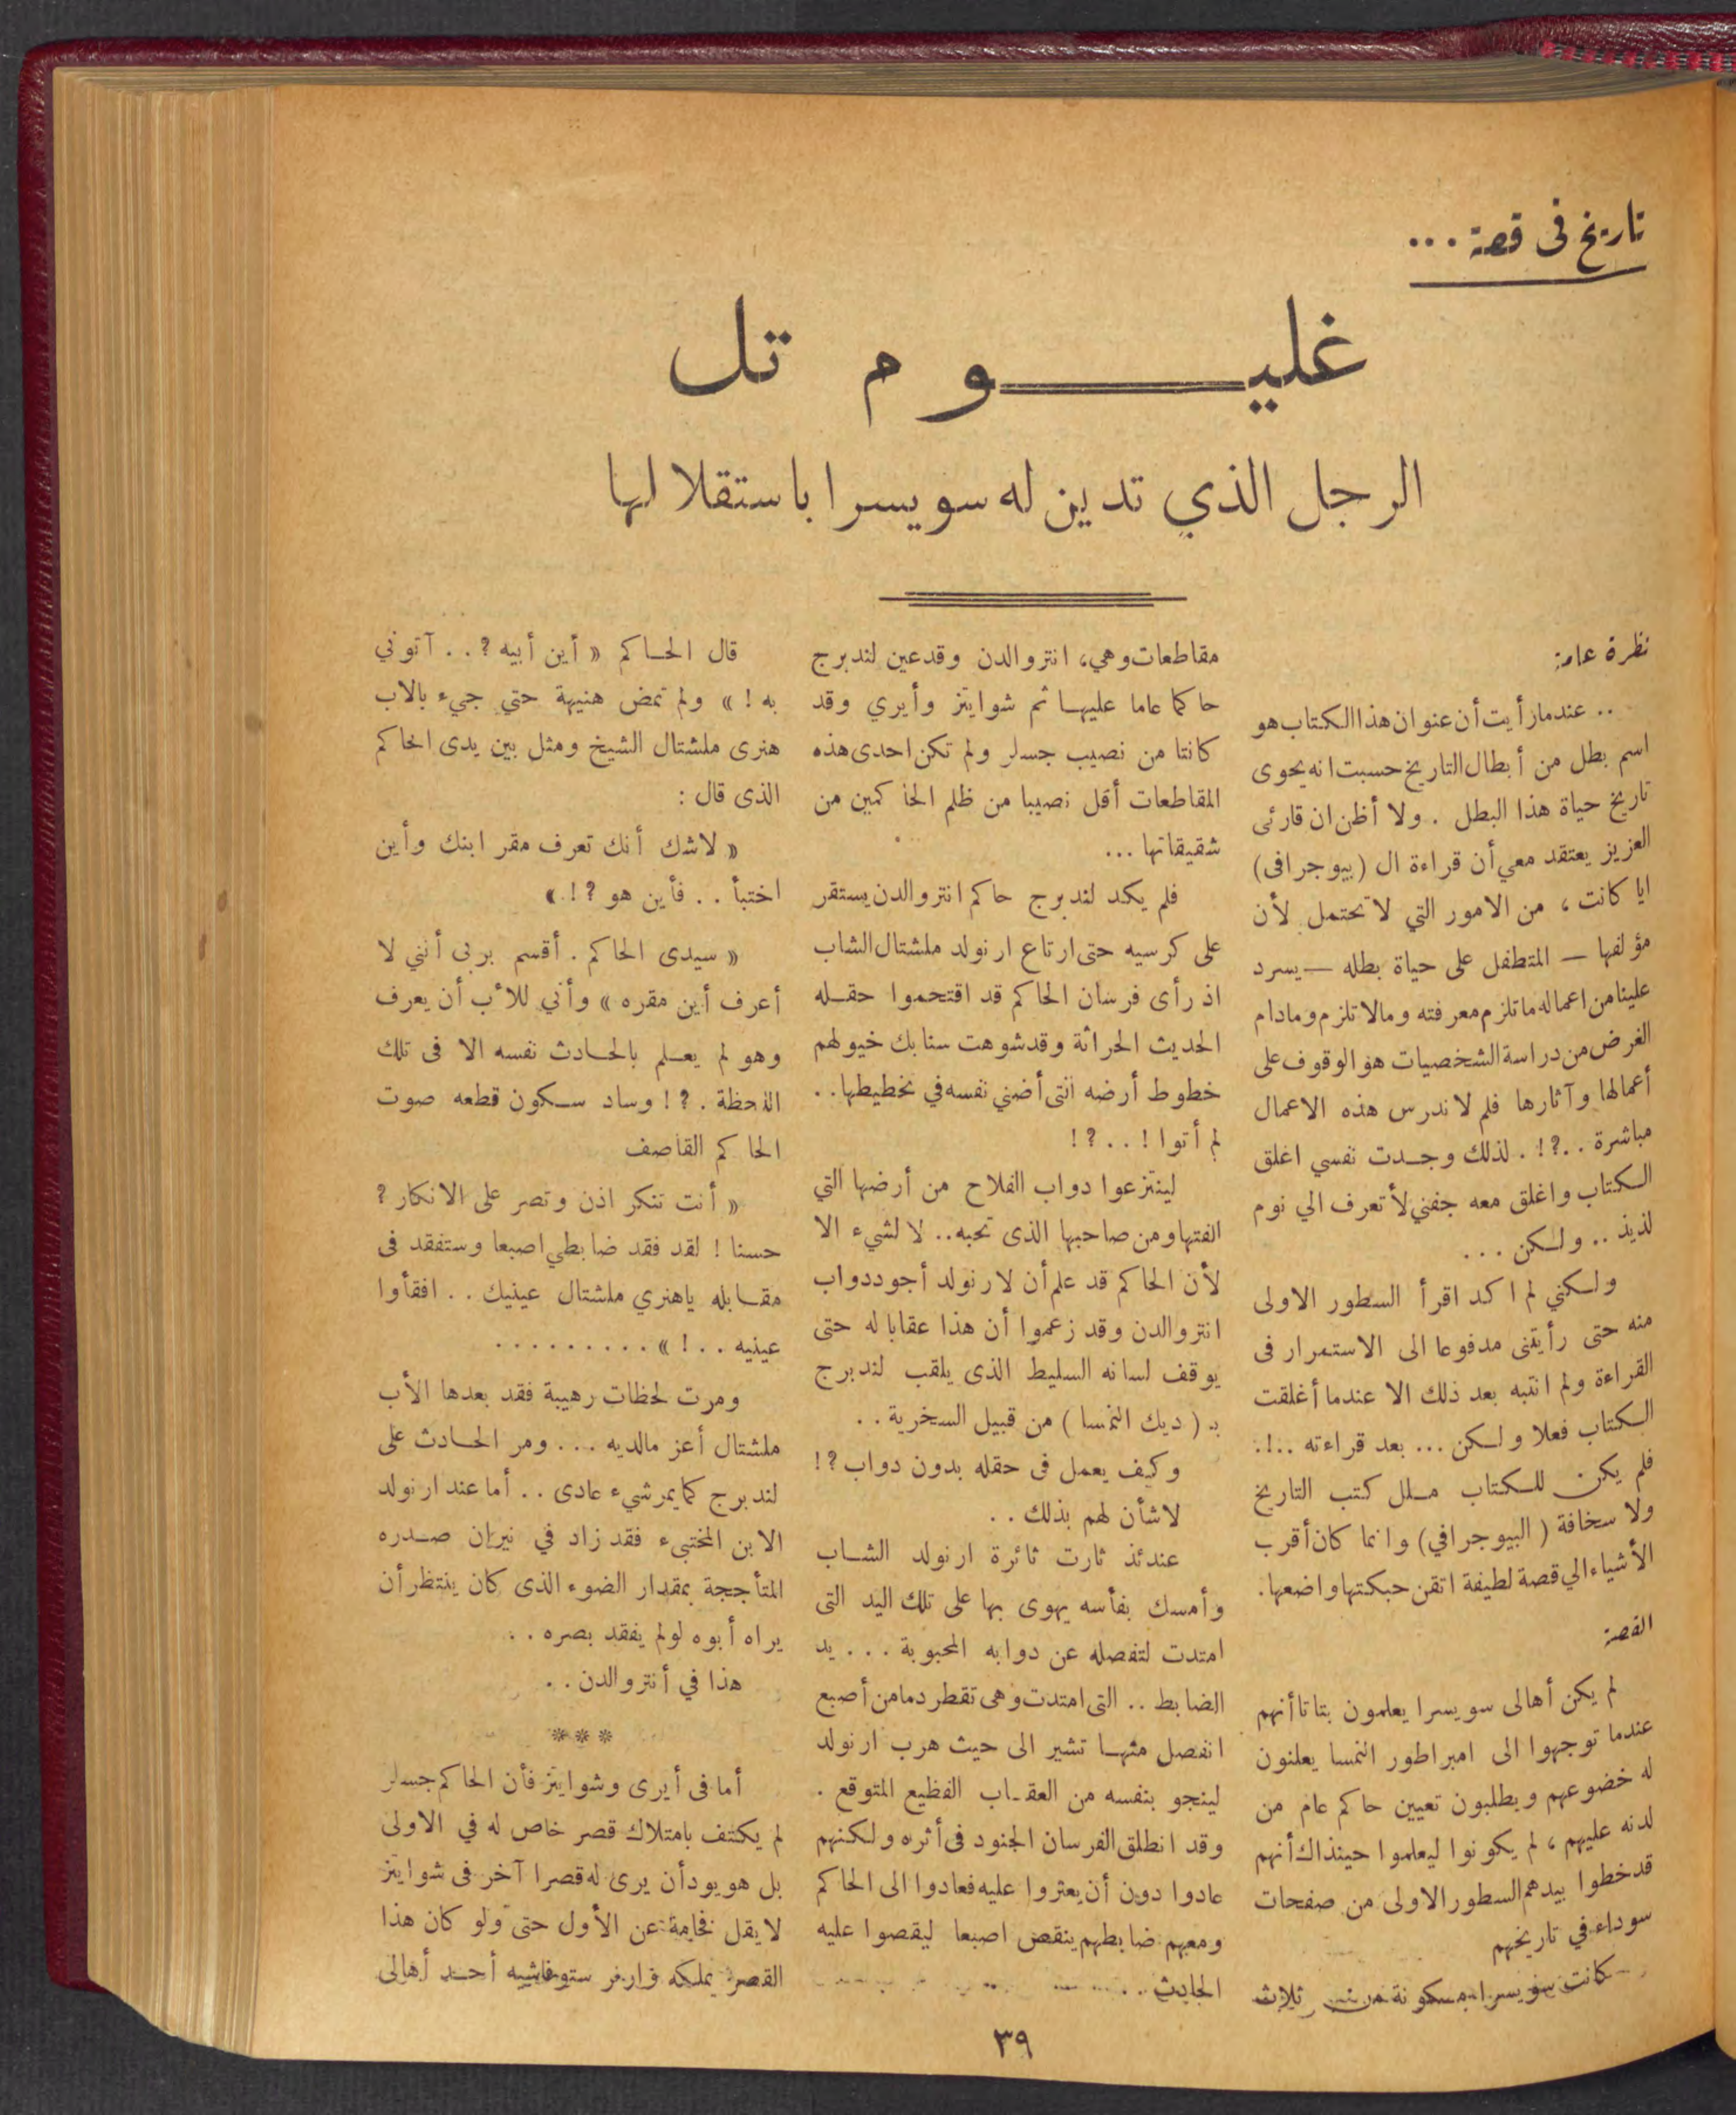 تاريخ فى قصة ...
غليوم تل
الرجل الذي تدين له سويسرا باستقلالها
نظرة عامة:
.. عندما رأيت أن عنوان هذا الكتاب هو
اسم بطل من أبطال التاريخ حسبت انه يحوى
تاريخ حياة هذا البطل . ولا أظن ان قارئى
العزيز يعتقد معي أن قراءة ال (بيوجرافى)
ايا كانت ، من الامور التي لا تحتمل لأن
مؤلفها — المتطفل على حياة بطله — يسرد
علينا من اعماله ما تلزم معرفته وما لا تلزم وما دام
الغرض من دراسة الشخصيات هو الوقوف على
أعمالها وآثارها فلم لا ندرس هذه الاعمال
مباشرة ..؟! . لذلك وجدت نفسي اغلق
الكتاب واغلق معه جفني لأتعرف الي نوم
لذيذ .. ولكن ...
ولكني لم اكد اقرأ السطور الاولى
منه حتى رأيتنى مدفوعا الى الاستمرار فى
القراءة ولم انتبه بعد ذلك الا عندما أغلقت
الكتاب فعلا ولكن ... بعد قراءته ..!.
فلم يكن للكتاب ملل كتب التاريخ
ولا سخافة ( البيوجرافي) وانما كان أقرب
الأشياء الي قصة لطيفة اتقن حبكتها واضعها.
القصة
لم يكن أهالى سويسرا يعلمون بتاتا أنهم
عندما توجهوا الى امبراطور النمسا يعلنون
له خضوعهم ويطلبون تعيين حاكم عام من
لدنه عليهم ، لم يكونوا ليعلموا حينذاك أنهم
قد خطوا بيدهم السطور الاولى من صفحات
سوداء في تاريخهم
كانت سويسرا مكونة من ثلاث
مقاطعات وهي، انتروالدن وقد عين لندبرج
حاكما عاما عليها ثم شوايتز وأيري وقد
كانتا من نصيب جسلر ولم تكن احدى هذه
المقاطعات أقل نصيبا من ظلم الحاكمين من
شقيقاتها ...
فلم يكد لندبرج حاكم انتروالدن يستقر
على كرسيه حتى ارتاع ارنولد ملشتال الشاب
اذ رأى فرسان الحاكم قد اقتحموا حقله
الحديث الحراثة وقد شوهت سنابك خيولهم
خطوط أرضه التى أضني نفسه في تخطيطها..
لم أتوا ! . . ؟ !
لينتزعوا دواب الفلاح من أرضها التي
الفتها ومن صاحبها الذى تحبه.. لا لشيء الا
لأن الحاكم قد علم أن لارنولد أجود دواب
انتروالدن وقد زعموا أن هذا عقابا له حتى
يوقف لسانه السليط الذى يلقب لندبرج
بـ ( ديك النمسا ) من قبيل السخرية . .
وكيف يعمل فى حقله بدون دواب ؟ !
لاشأن لهم بذلك . .
عندئذ ثارت ثائرة ارنولد الشاب
وأمسك بفأسه يهوى بها على تلك اليد التى
امتدت لتفصله عن دوابه المحبوبة . . . يد
الضابط .. التى امتدت وهى تقطر دما من أصبع
انفصل منها تشير الى حيث هرب ارنولد
لينجو بنفسه من العقاب الفظيع المتوقع .
وقد انطلق الفرسان الجنود فى أثره ولكنهم
عادوا دون أن يعثروا عليه فعادوا الى الحاكم
ومعهم ضابطهم ينقص اصبعا ليقصوا عليه
الحادث . .
قال الحاكم « أين أبيه ؟ . . آتوني
به ! » ولم تمض هنيهة حتي جيء بالاب
هنرى ملشتال الشيخ ومثل بين يدى الحاكم
الذى قال :
« لاشك أنك تعرف مقر ابنك وأين
اختبأ . . فأين هو ؟ ! »
« سيدى الحاكم . أقسم بربى أنني لا
أعرف أين مقره » وأني للأب أن يعرف
وهو لم يعلم بالحادث نفسه الا فى تلك
اللحظة . ؟ ! وساد سكون قطعه صوت
الحاكم القاصف
« أنت تنكر اذن وتصر على الانكار ؟
حسنا ! لقد فقد ضابطي اصبعا وستفقد فى
مقابله ياهنري ملشتال عينيك . . افقأوا
عينيه . . ! » . . . . . . . . .
ومرت لحظات رهيبة فقد بعدها الأب
ملشتال أعز مالديه . . . ومر الحادث على
لندبرج كما يمر شيء عادى . . أما عند ارنولد
الابن المختبىء فقد زاد في نيران صدره
المتأججة بمقدار الضوء الذى كان ينتظر أن
يراه أبوه لو لم يفقد بصره . .
هذا في أنتروالدن . .
***
أما فى أيرى وشوايتز فأن الحاكم جسلر
لم يكتف بامتلاك قصر خاص له في الاولى
بل هو يود أن يرى له قصرا آخر فى شوايتز
لا يقل فخامة عن الأول حتى ولو كان هذا
القصر يملكه فارنر ستوفاشيه أحد أهالى
٣٩